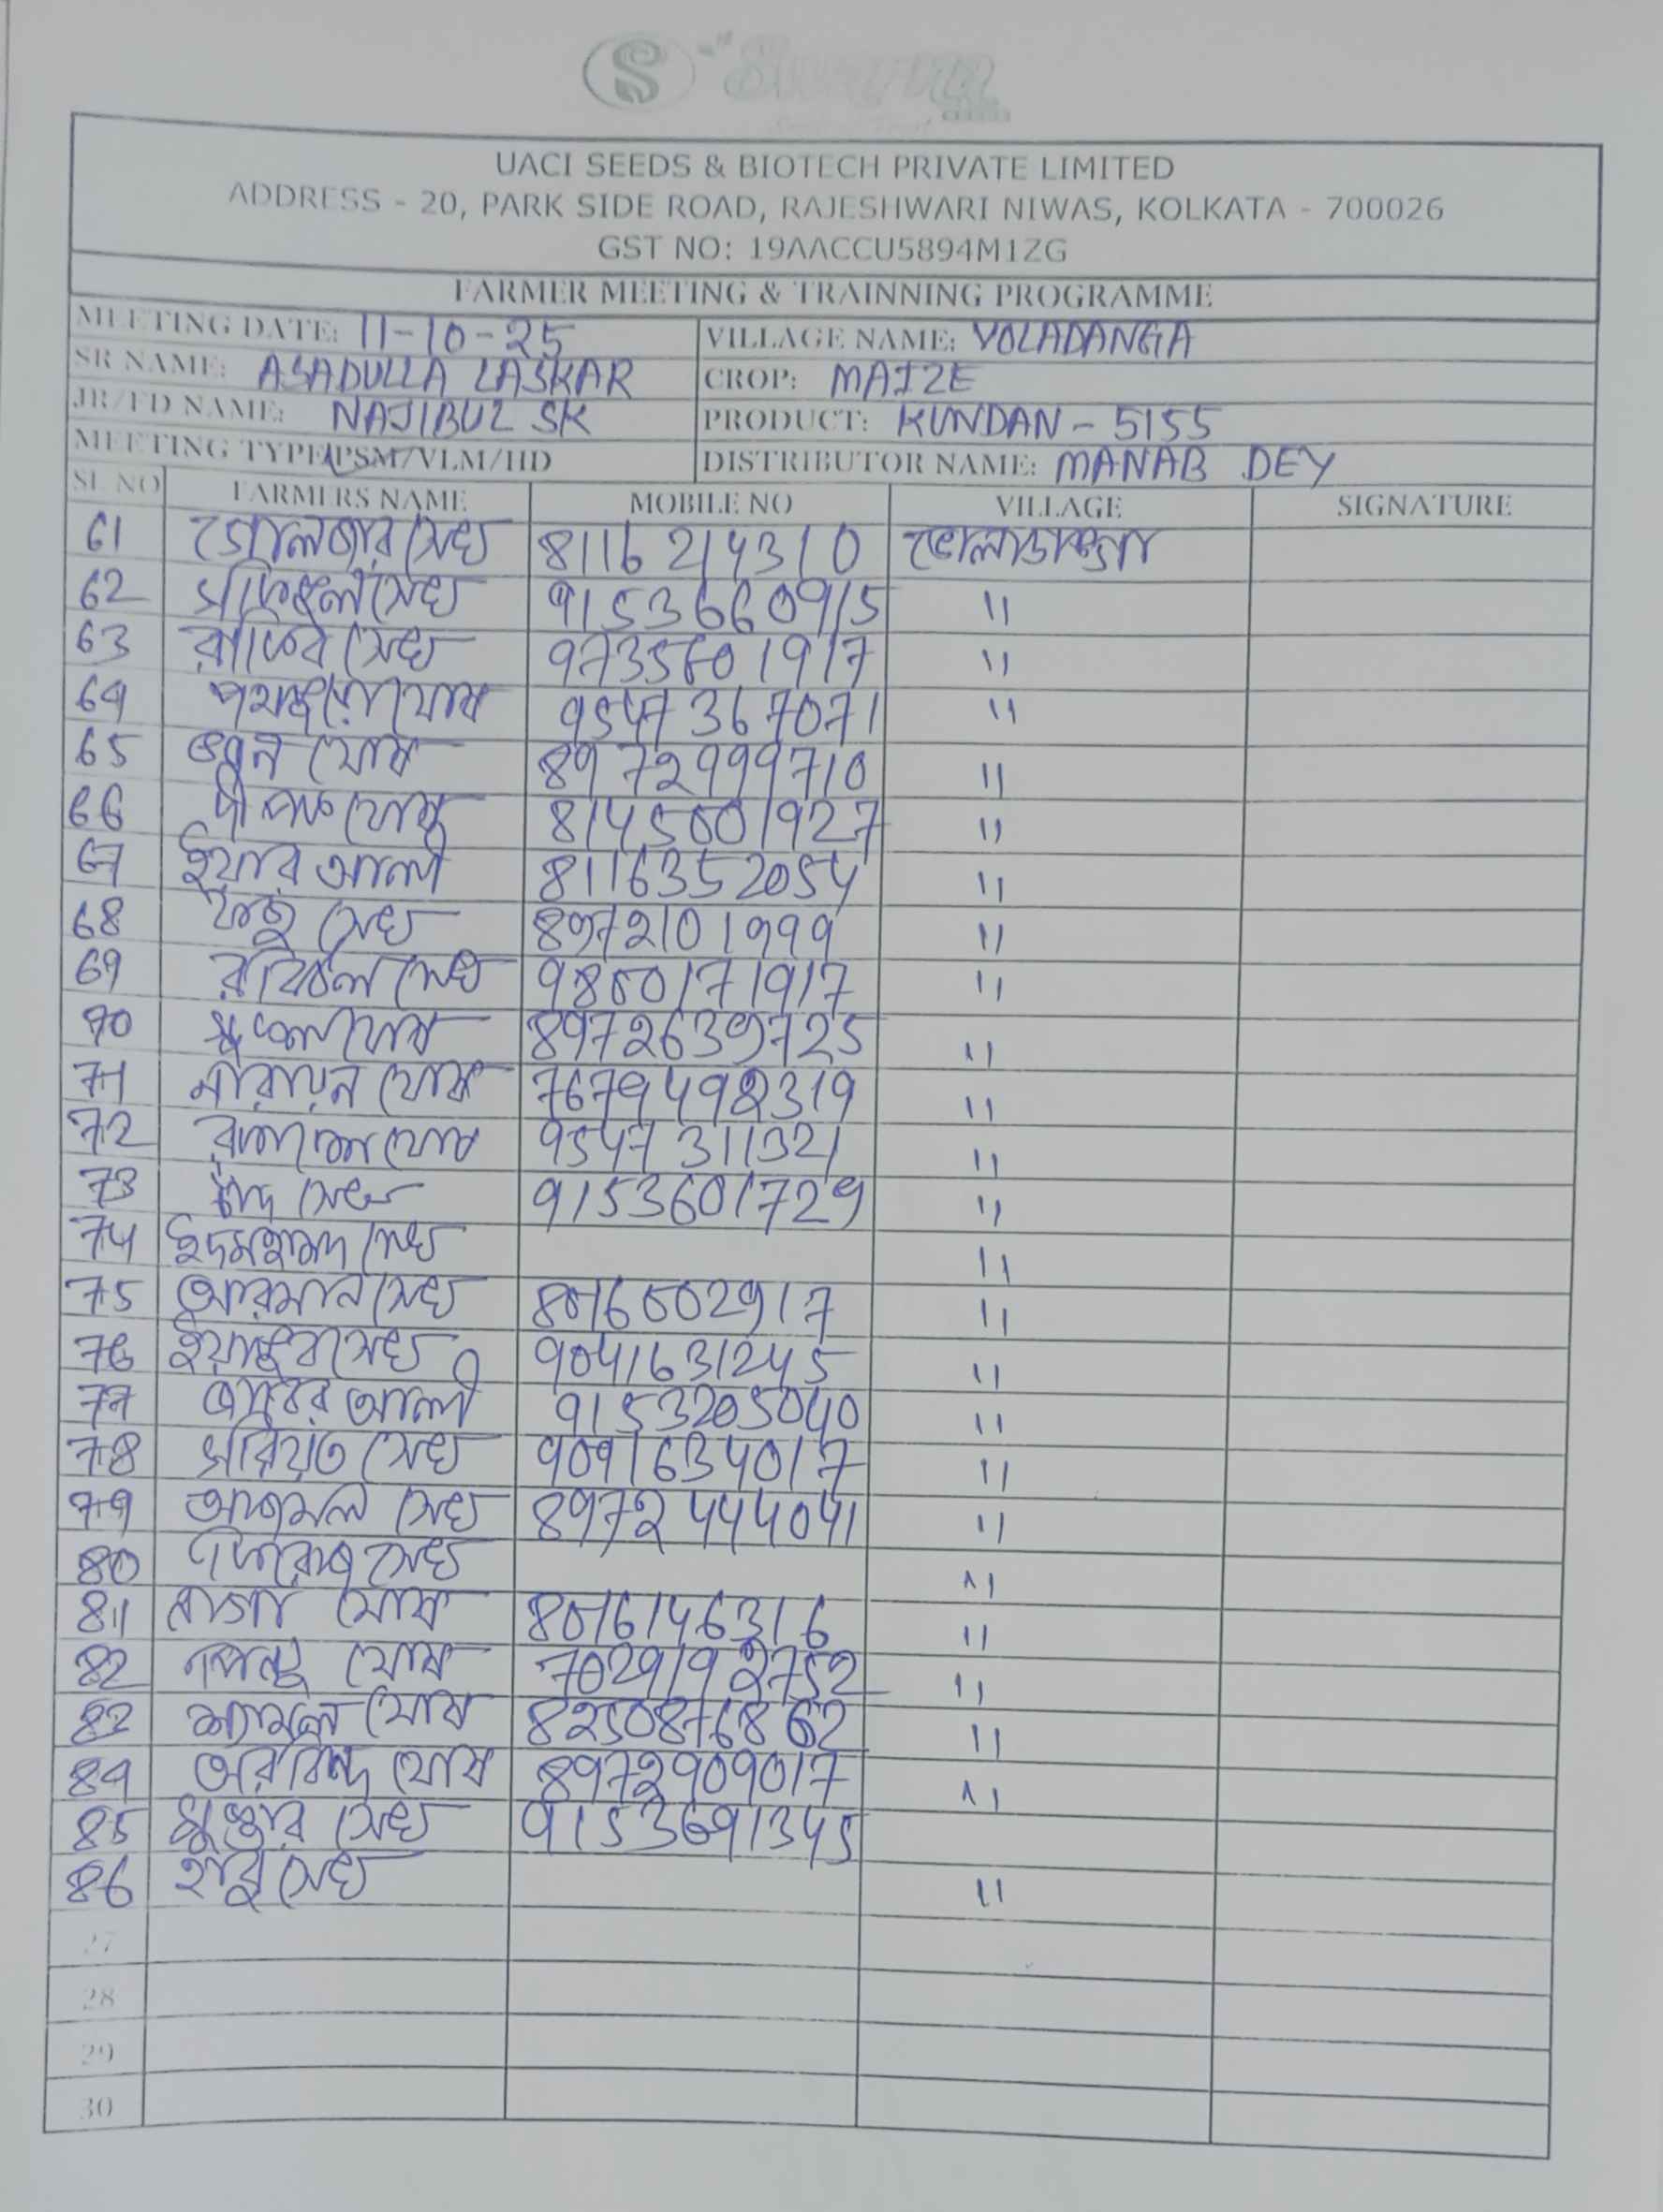 S Suapma
UACI SEEDS & BIOTECH PRIVATE LIMITED
ADDRESS - 20, PARK SIDE ROAD, RAJESHWARI NIWAS, KOLKATA - 700026
GST NO: 19AACCU5894M1ZG
FARMER MEETING & TRAINNING PROGRAMME
MEETING DATE: 11-10-25 VILLAGE NAME: VOLADANGA
SR NAME: ASADULLA LASKAR CROP: MAIZE
JR/FD NAME: NAJIBUL SK PRODUCT: KUNDAN - 5155
MEETING TYPE PSM/VLM/HD DISTRIBUTOR NAME: MANAB DEY
SL NO FARMERS NAME MOBILE NO VILLAGE SIGNATURE
61 গোলজার সেখ 8116214310 ভোলাডাঙ্গা
62 সেখ 9153660915 "
63 রাকিব সেখ 9735601917 "
64 ঘোষ 9547367071 "
65 ঘোষ 8972999710 "
66 দীপক ঘোষ 8145601927 "
67 ইয়ার আলী 8116352054 "
68 সেখ 8972101999 "
69 রবিউল সেখ 9860171917 "
70 ঘোষ 8972639725 "
71 নারায়ন ঘোষ 7679498319 "
72 ঘোষ 9547311321 "
73 চাঁদ সেখ 9153601729 "
74 সেখ "
75 আরমান সেখ 8016602917 "
76 সেখ 9041631245 "
77 আলী 9153205040 "
78 সরিয়ত সেখ 9091634017 "
79 আজমল সেখ 8972444041 "
80 ফিরোজ সেখ "
81 ঘোষ 8016146316 "
82 ঘোষ 7029192752 "
83 শ্যামল ঘোষ 8250876862 "
84 অরবিন্দ ঘোষ 8972909017 "
85 সেখ 9153691345
86 সেখ "
27
28
29
30